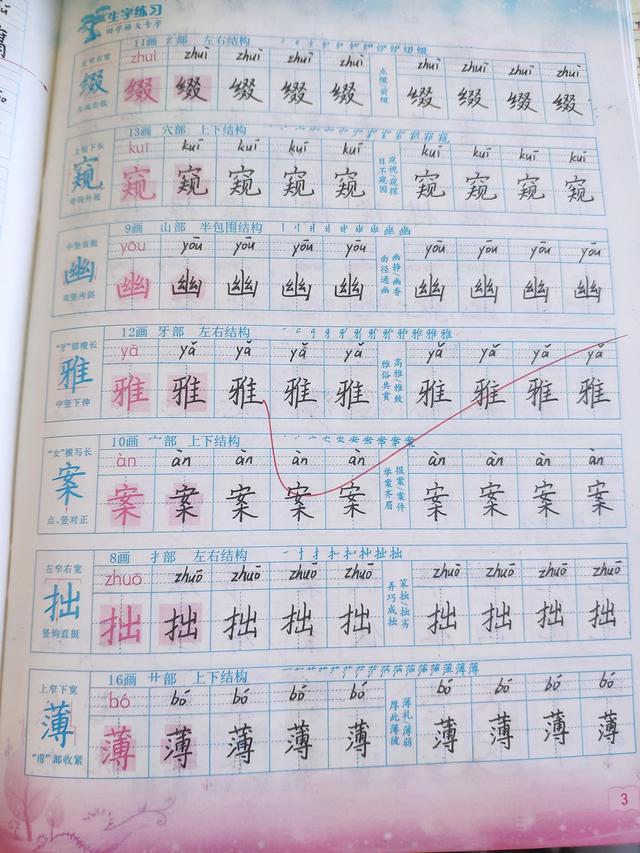 生字练习
田字格大号字
11画 纟部 左右结构
左窄右宽
zhuì zhuì zhuì zhuì zhuì zhuì zhuì zhuì zhuì
缀 缀 缀 缀 缀 缀 点缀/前缀 缀 缀 缀 缀
13画 穴部 上下结构
上短下长
kuī kuī kuī kuī kuī kuī kuī kuī kuī
窥 窥 窥 窥 窥 窥 窥视/窥探 目不窥园 窥 窥 窥 窥
弯钩外展
9画 山部 半包围结构
中竖直挺
yōu yōu yōu yōu yōu yōu yōu yōu yōu
幽 幽 幽 幽 幽 幽 幽静/幽香 曲径通幽 幽 幽 幽 幽
双竖内斜
12画 牙部 左右结构
“牙”部瘦长
yǎ yǎ yǎ yǎ yǎ yǎ yǎ yǎ yǎ
雅 雅 雅 雅 雅 雅 高雅/雅致 雅俗共赏 雅 雅 雅 雅
中竖下伸
10画 宀部 上下结构
“女”横写长
àn àn àn àn àn àn àn àn àn
案 案 案 案 案 案 报案/案件 举案齐眉 案 案 案 案
点、竖对正
8画 扌部 左右结构
左窄右宽
zhuō zhuō zhuō zhuō zhuō zhuō zhuō zhuō zhuō
拙 拙 拙 拙 拙 拙 笨拙/拙劣 弄巧成拙 拙 拙 拙 拙
竖钩直挺
16画 艹部 上下结构
上窄下宽
bó bó bó bó bó bó bó bó bó
薄 薄 薄 薄 薄 薄 薄礼/薄弱 厚此薄彼 薄 薄 薄 薄
“甫”部收紧
3